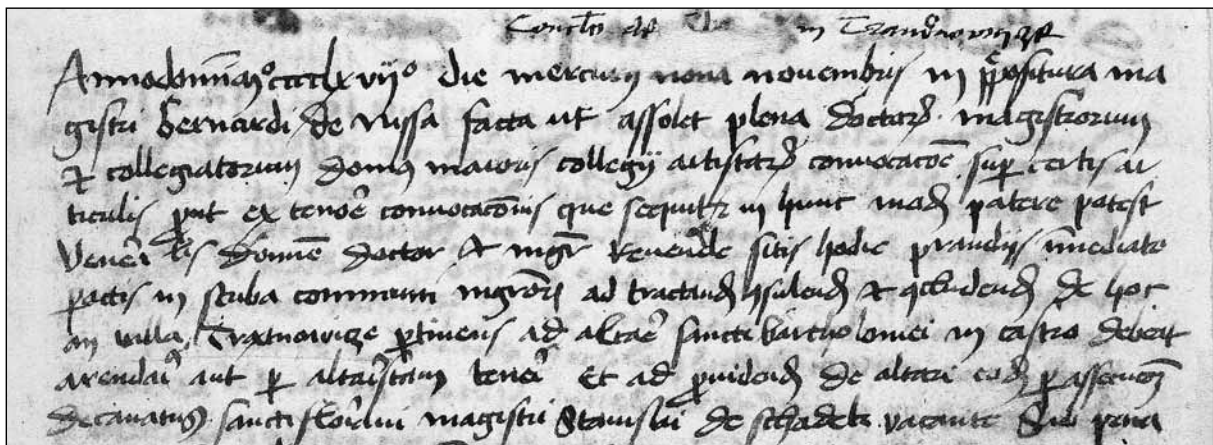 Conclusio de in Trzanowicze
Anno domini mºccccºlxvijº die mercurii nona novembris in prepositura ma
gistri Bernardi de Nissa facta ut assolet plena doctorum magistrorum
et collegiatorum domus maioris collegii artistarum convocacione super certis ar
ticulis prout ex tenore convocacionis que sequitur in hunc modum patere potest
Venerabilis domine doctor et magister Reverende sitis hodie prandiis immediate
peractis in stuba communi magistrorum ad tractandum consulendum et concludendum de hoc
an villa pertinens ad altare sancti Bartholomei in castro debeat
arendari aut per altaristam teneri Et ad providendum de altari eodem per assecucionem
decanatus sancti Floriani magistri Stanislai de Schadek vacante Sub pena